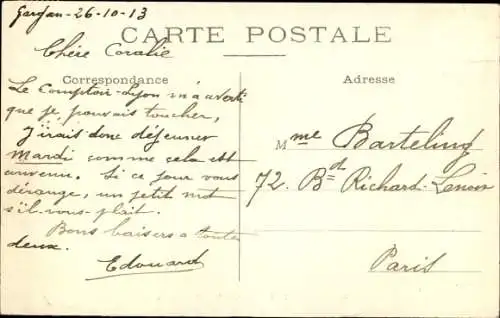 Gargan - 26-10-13
CARTE POSTALE
Chère Coralie
Correspondance
Le Comptoir-Lyon m'a averti
que je pouvais toucher,
J'irais donc déjeuner
Mardi comme cela est
convenu. Si ce jour vous
dérange, un petit mot
s'il-vous-plait.
Bons baisers a toute
deux.
Edouard
Adresse
Mme Barteling
72. Bd Richard-Lenoir
Paris